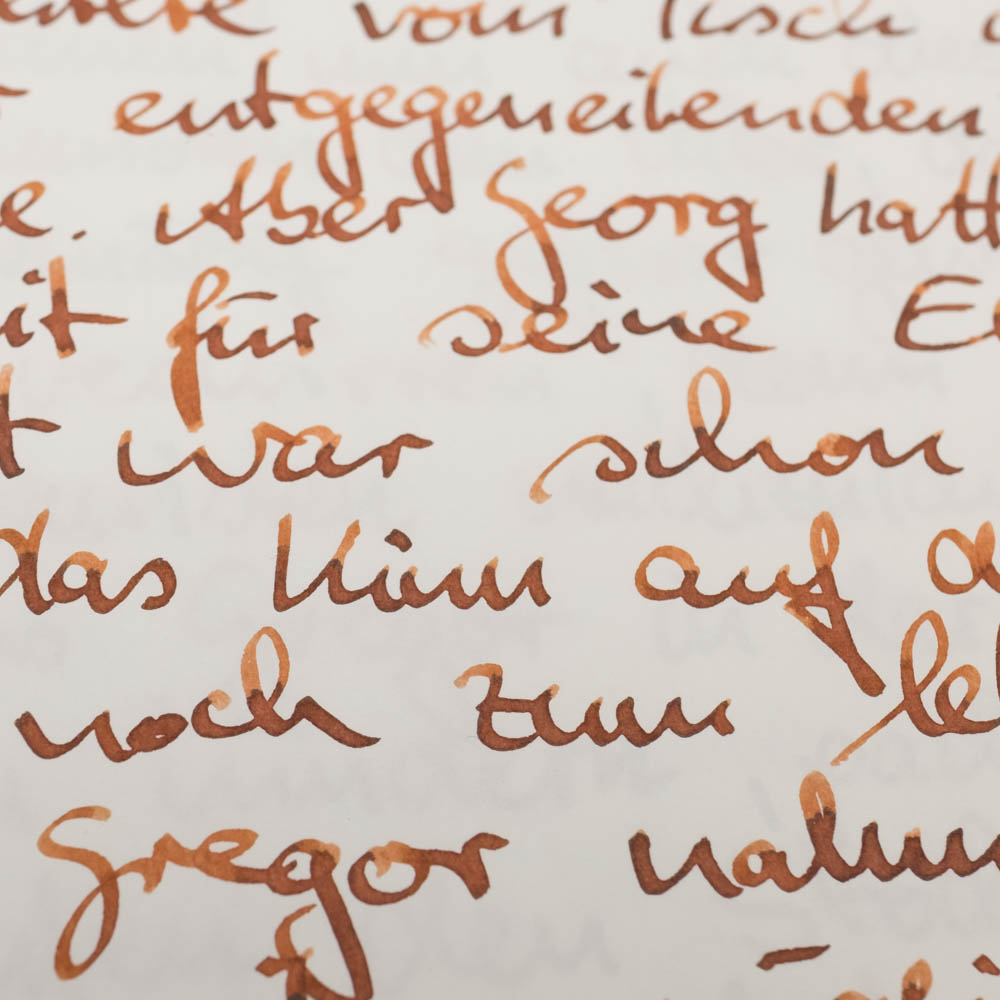 vom Tisch
entgegeneilenden
e. Aber Georg hatt
eit für seine El
t war schon
das Kinn auf d
noch zum le
Gregor nahm